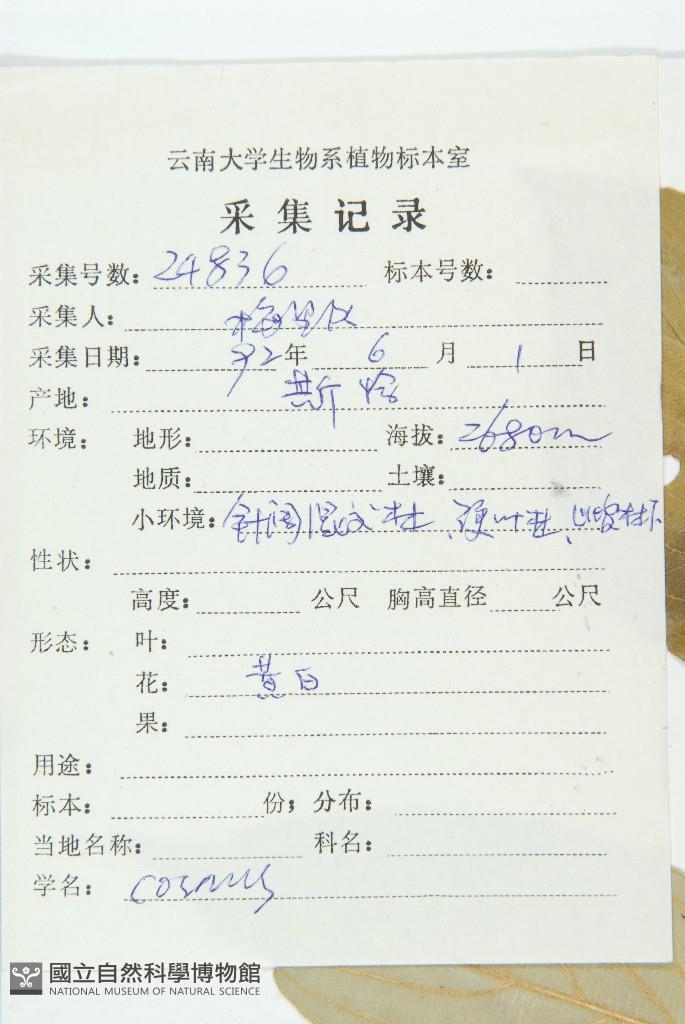 云南大学生物系植物标本室
采集记录
采集号数：24836 标本号数：
采集人：
采集日期：92年6月1日
产地：
环境： 地形： 海拔：2680m
地质： 土壤：
小环境：针阔混交林、硬叶林、
性状：
高度： 公尺 胸高直径 公尺
形态： 叶：
花：黄白
果：
用途：
标本： 份；分布：
当地名称： 科名：
学名：Cornus
國立自然科學博物館
NATIONAL MUSEUM OF NATURAL SCIENCE